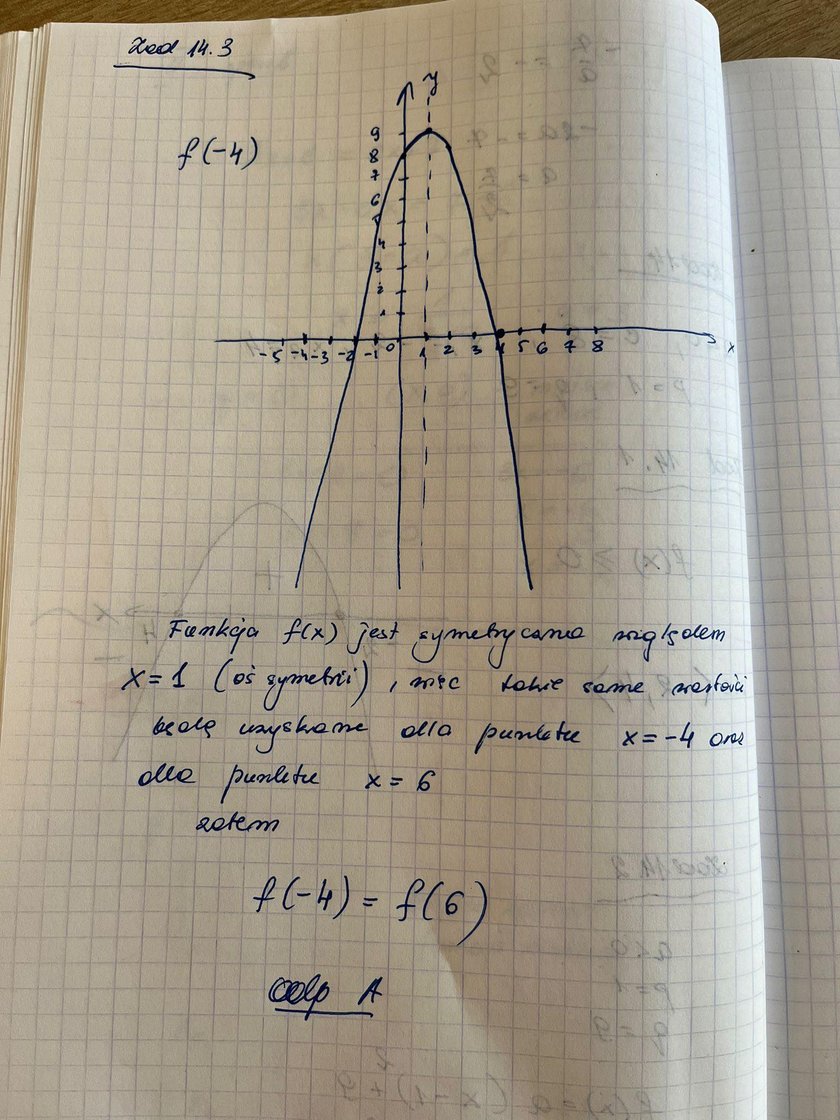 Zad 14.3
f(-4)
y
9
8
7
6
5
4
3
2
1
-5 -4 -3 -2 -1 0 1 2 3 4 5 6 7 8 x
Funkcja f(x) jest symetryczna względem
x=1 (oś symetrii), więc takie same wartości
będą uzyskane dla punktu x=-4 oraz
dla punktu x=6
zatem
f(-4) = f(6)
Odp A